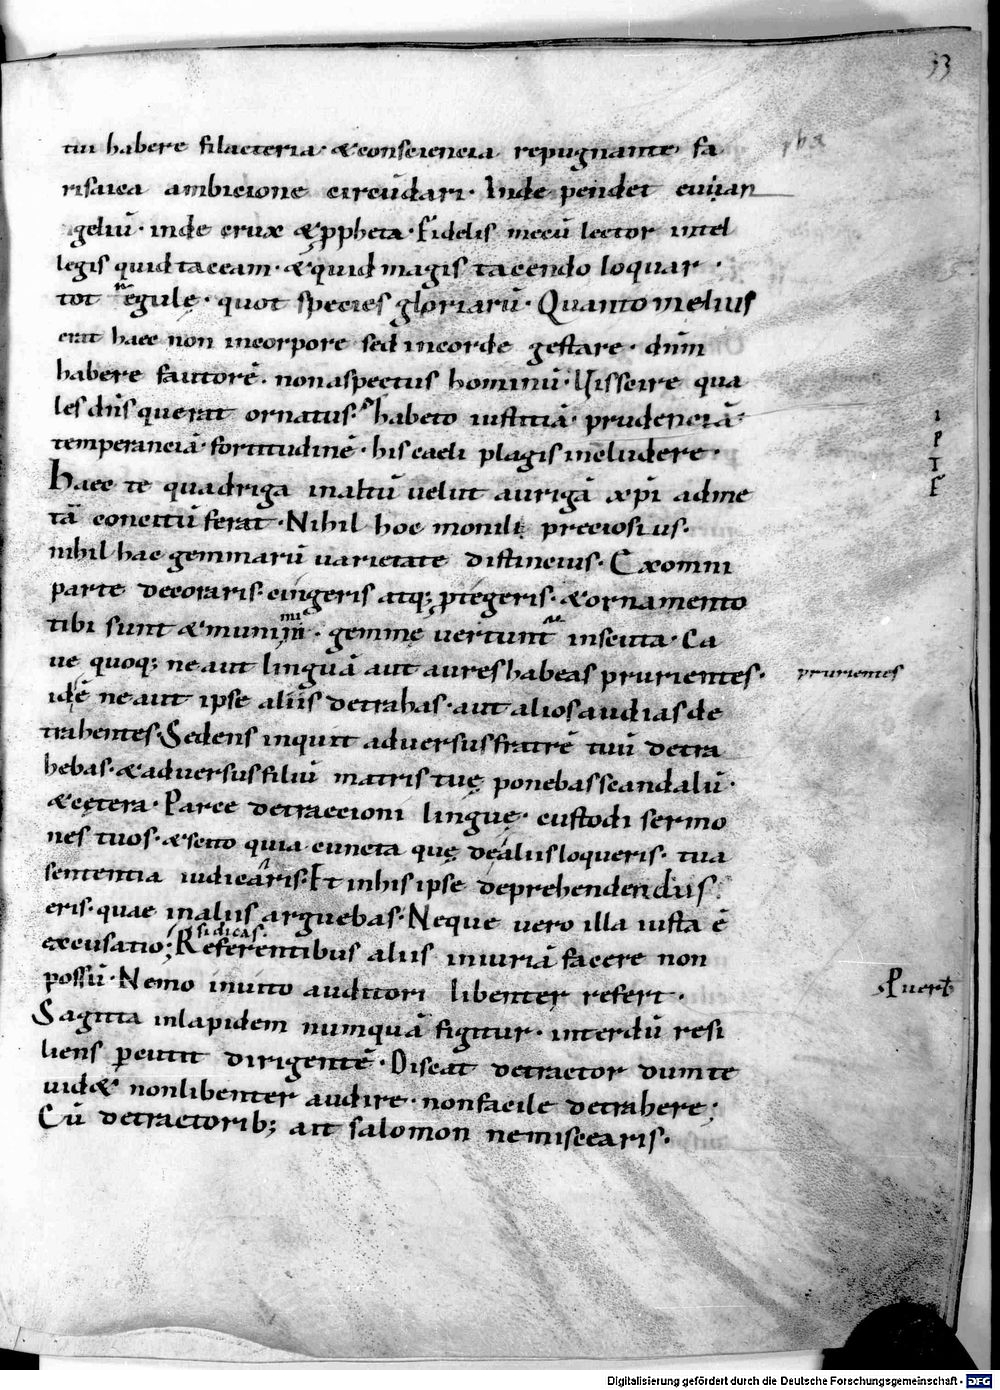 33
tui habere filacteria· &consciencia repugnante fa
risaica ambicione circūdari· Inde pendet euuan
geliū· inde crux &ꝓpheta· Fidelis mecū lector intel
legis quid taceam· &quid magis tacendo loquar·
tot regulę· quot species gloriarū· Quanto melius
erat haec non incorpore sed incorde gestare· dn̄m
habere fautorē· non aspectus hominū· Uis scire qua
les dn̄s querat ornatus· habeto iustitiā· prudenciā·
temperanciā· fortitudinē· his caeli plagis includere·
Haec te quadriga inaltū uelut aurigā xp̄i ad me
tā concitū ferat· Nihil hoc monili preciosius·
nihil hac gemmarū uarietate distinctius· Exomni
parte decoraris· cingeris atq; ꝓtegeris· &ornamento
tibi sunt &munimini· gemmę uertunt inscuta· Ca
ue quoq; ne aut linguā aut aures habeas prurientes·
prurientes
idē ne aut ipse aliis detrahas· aut alios audias de
trahentes· Sedens inquit aduersus fratrē tuū detra
hebas· &aduersus filiū matris tuę ponebas scandalū·
&cetera· Parce detraccioni linguę· custodi sermo
nes tuos· &scito quia cuncta quę dealiis loqueris· tua
sententia iudicaris· Et inhis ipse deprehendendus
eris· quae inaliis arguebas· Neque uero illa iusta ē
excusatio; si dicas·
Referentibus aliis iniuriā facere non
possū· Nemo inuito auditori libenter refert·
ꝓuerb
Sagitta inlapidem numquā figitur· interdū resi
liens ꝑcutit dirigentē· Discat detractor dum te
uid& non libenter audire· non facile detrahere;
Cū detractorib; ait salomon ne miscearis·
Digitalisierung gefördert durch die Deutsche Forschungsgemeinschaft - DFG